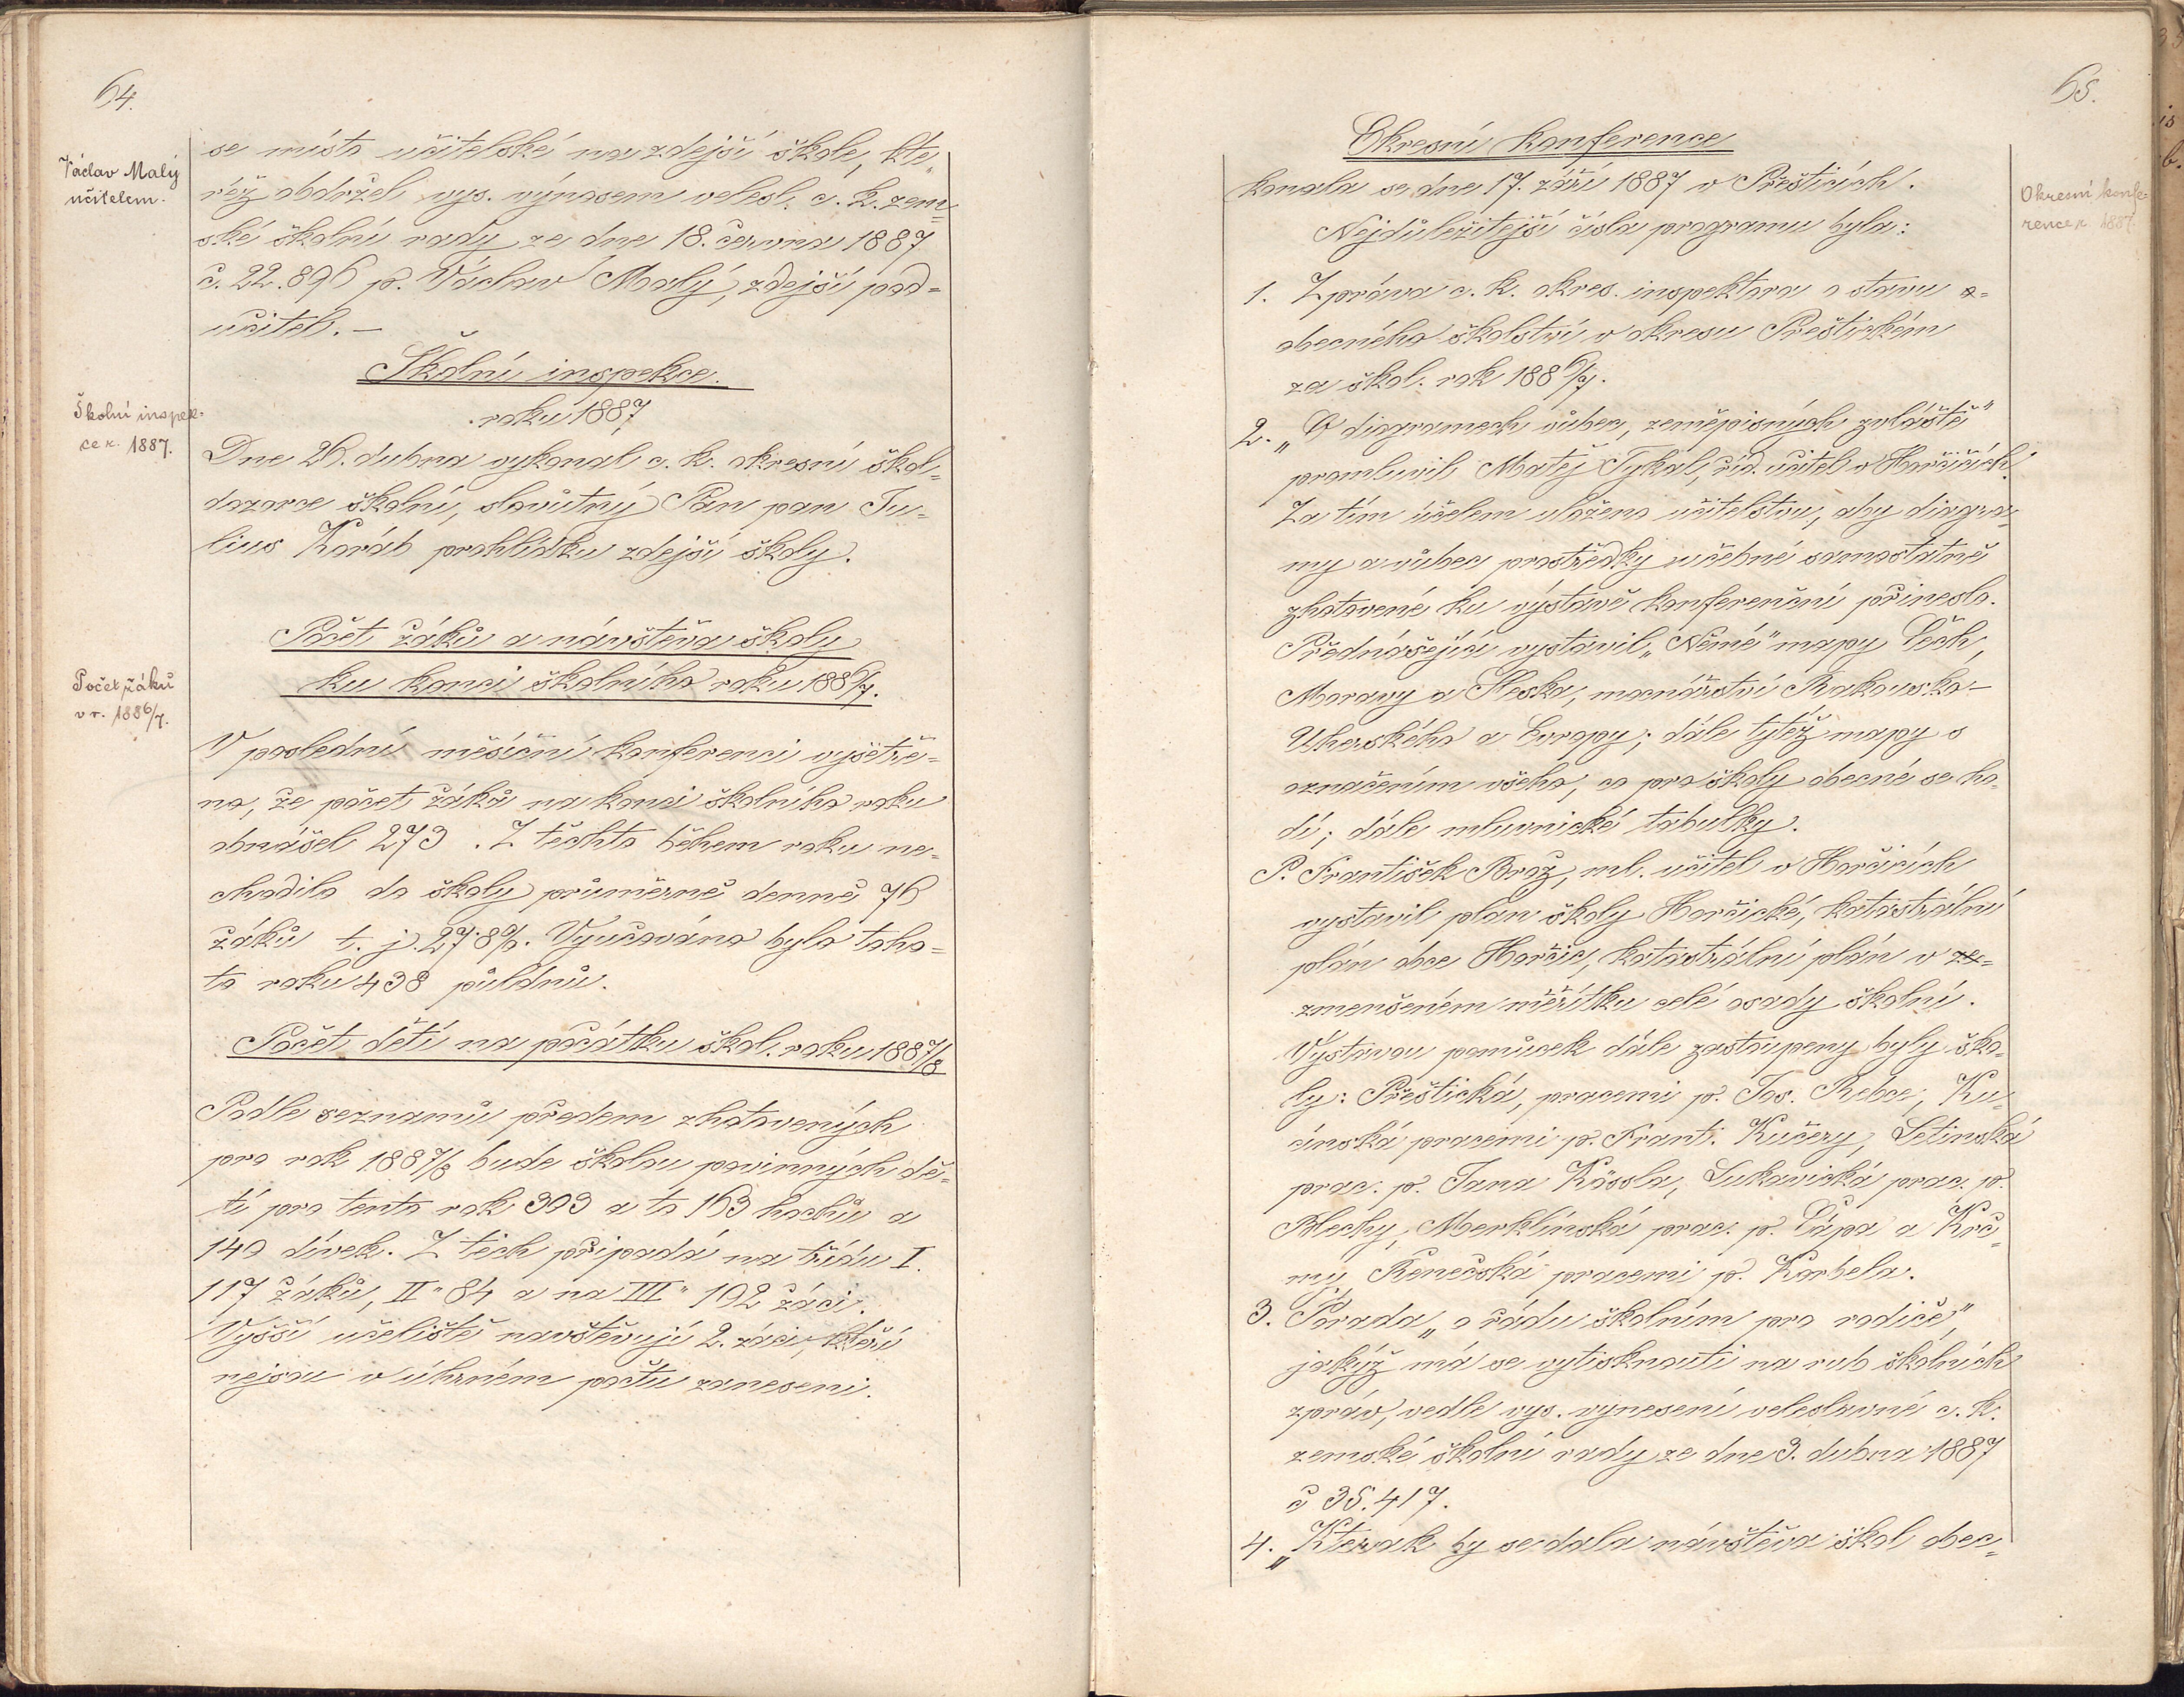 64.
Václav Malý
učitelem.
se místo učitelské na zdejší škole, kte-
réž obdržel vys. výnosem velesl. c. k. zem-
ské školní rady ze dne 18. června 1887
č. 22.896 p. Václav Malý, zdejší pod=
učitel. —
Školní inspekce
roku 1887
Školní inspek-
ce r. 1887.
Dne 26. dubna vykonal c. k. okresní škol=
dozorce školní, slovutný Pán pan Ju=
lius Koráb prohlídku zdejší školy.
Počet žáků a návštěva školy
ku konci školního roku 1886/7.
Počet žáků
v r. 1886/7.
V poslední měsíční konferenci vyšetře=
no, že počet žáků na konci školního roku
obnášel 273. Z těchto během roku ne=
chodilo do školy průměrně denně 76
žáků t. j. 27·8%. Vyučováno bylo toho=
to roku 438 půldnů.
Počet dětí na počátku škol. roku 1887/8
Podle seznamů předem zhotovených
pro rok 1887/8 bude školou povinných dě-
tí pro tento rok 303 a to 163 hochů a
140 dívek. Z těch připadá na třídu I.
117 žáků, II " 84 a na III " 102 žáci.
Vyšší učeliště navštěvují 2. žáci, kteří
nejsou v úhrném počtu zaneseni.
65.
Okresní konference
Okresní konfe-
rence r. 1887.
konala se dne 17. září 1887 v Přešticích.
Nejdůležitější čísla programu byla:
1. Zpráva c. k. okres. inspektora o stavu o=
obecného školství v okresu Přeštickém
za škol. rok 1886/7.
2. „O diagramech vůbec, zeměpisných zvláště"
promluvil Matěj Tykal, říd. učitel v Horčičích.
Za tím účelem uloženo učitelstvu, aby diagra-
my a vůbec prostředky učebné samostatně
zhotovené ku výstavě konferenční přineslo.
Přednášející vystavil „Němé" mapy Čech,
Moravy a Slezska, mocnářství Rakousko-
Uherského a Evropy; dále tytéž mapy s
označením všeho, co pro školy obecné se ho-
dí; dále mluvnické tabulky.
P. František Brož, ml. učitel v Horčicích
vystavil plán školy Horčické, katastrální
plán obce Horčic, katastrální plán v ze=
zmenšeném měřítku celé osady školní.
Výstavou pomůcek dále zastoupeny byly ško-
ly: Přeštická, pracemi p. Jos. Rebce, Ku-
cínská pracemi p. Frant. Kučery, Letinská
prac. p. Jana Kössla, Lukavická prac. p.
Blechy, Merklínská prac. p. Čápa a Krč-
my, Řenečská pracemi p. Korbela.
3. Porada „o řádu školním pro rodiče",
jakýž má se vytisknouti na rub školních
zpráv, vedle vys. vynesení veleslavné c. k.
zemské školní rady ze dne 3. dubna 1887
č 35.417.
4. „Kterak by se dala návštěva škol obec-